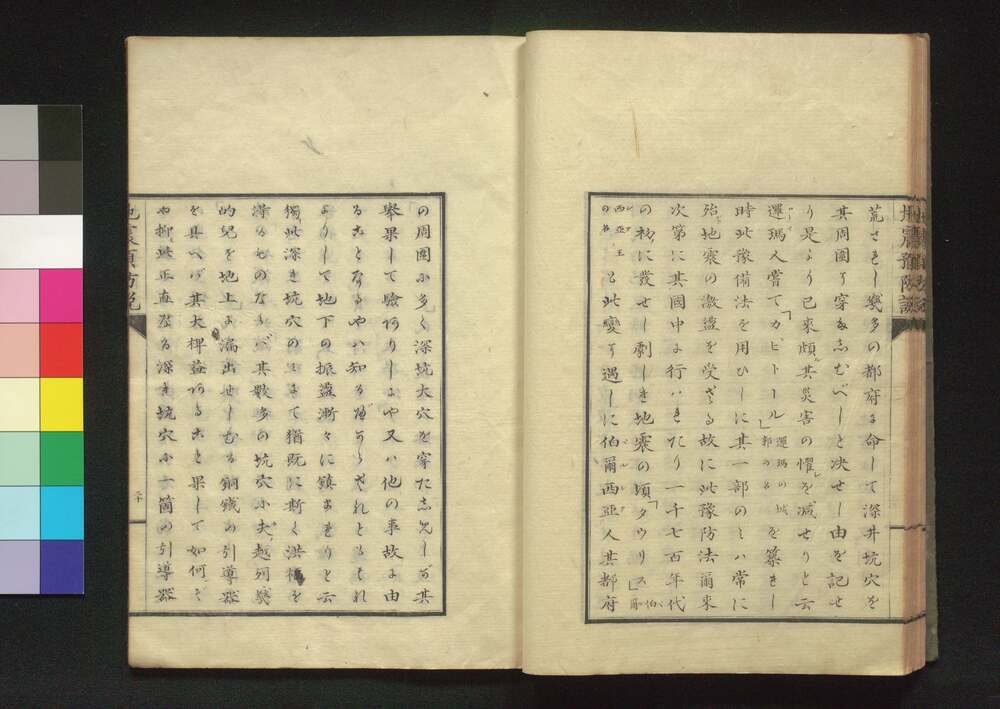 荒さる一幾多の都府に命して深井坑穴を
其周圍に穿たしむべしと決せし由を記せ
り是より已來頗其災害の懼を減せりと云
邏瑪人嘗て「カピトール」邏瑪の城郭の名を築きし
時此豫備法を用ひしに其一部のミハ常に
殆地震の激盪を受ざる故に此豫防法爾來
次第に其國中に行ハれたり一千七百年代
の初に發せし劇しき地震の頃「タウリス」伯爾
西亞王の名も此變に遇しに伯爾西亞人其都府
地震豫防説
の周圍に多く深坑大穴を穿たしめしが其
擧果して驗ありしにや又ハ他の事故に由
ることなるやハ知るべからざれともそれ
よりして地下の振盪漸々に鎮まれりと云
獨此深き坑穴のミにて猶既に斯く洪福を
得るものならバ其數多の坑穴に夫越列幾
的兒を地上に漏出せしむる銅鐵の引導器
を具へバ其大裨益あること果して如何ぞ
や抑此正直なる深き坑穴に一箇の引導器
地震預防説
二十